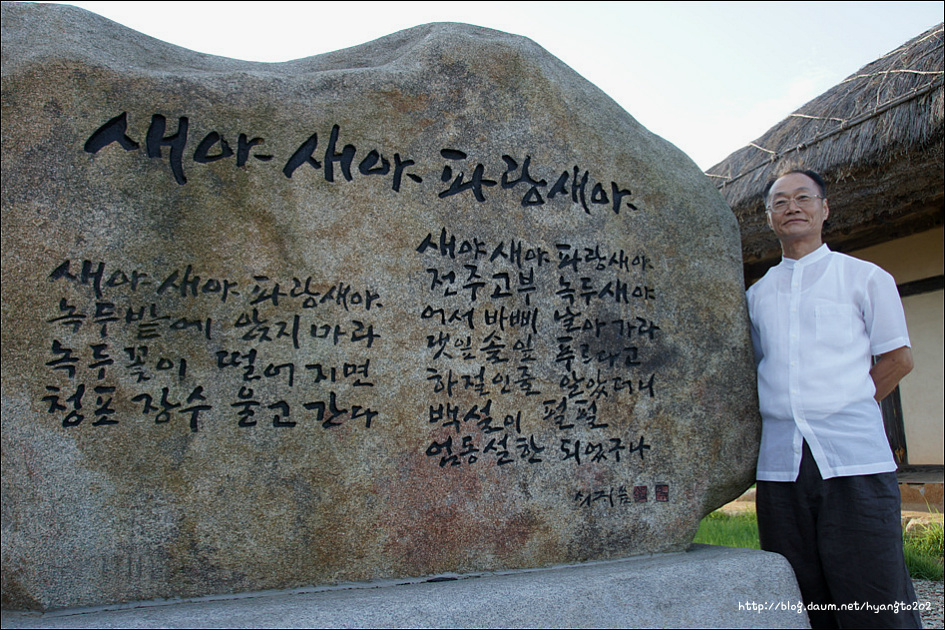 새야 새야 파랑새야
새야 새야 파랑새야
녹두밭에 앉지마라
녹두꽃이 떨어지면
청포 장수 울고 간다
새야 새야 파랑새야
전주고부 녹두새야
어서 바삐 날아가라
댓잎 솔잎 푸르다고
하절인줄 알았더니
백설이 펄펄
엄동설한 되었구나
http://blog.daum.net/hyangto202